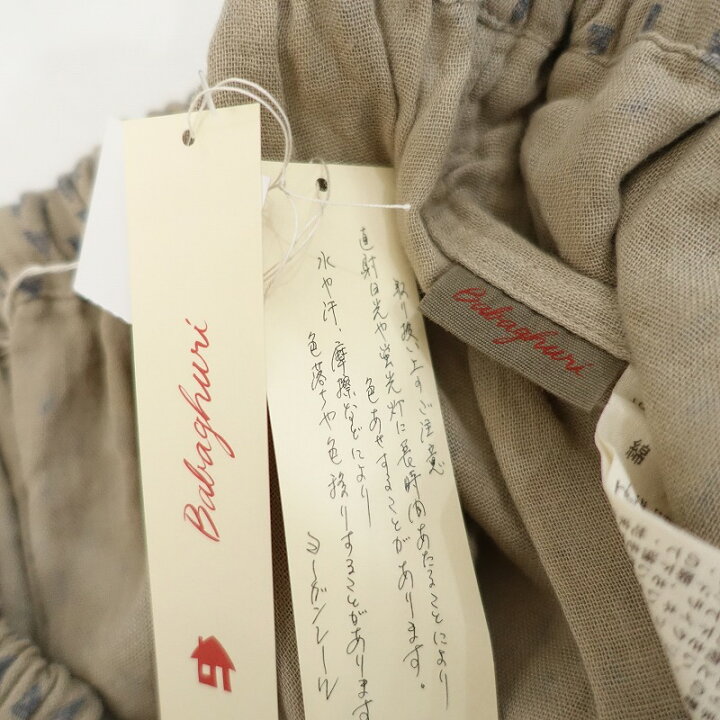 Babaghuri
取り扱い上のご注意
直射日光や蛍光灯に長時間あたることにより
色あせすることがあります。
水や汗、摩擦などにより
色落ちや色移りすることがあります
ヨーガンレール
Babaghuri
綿